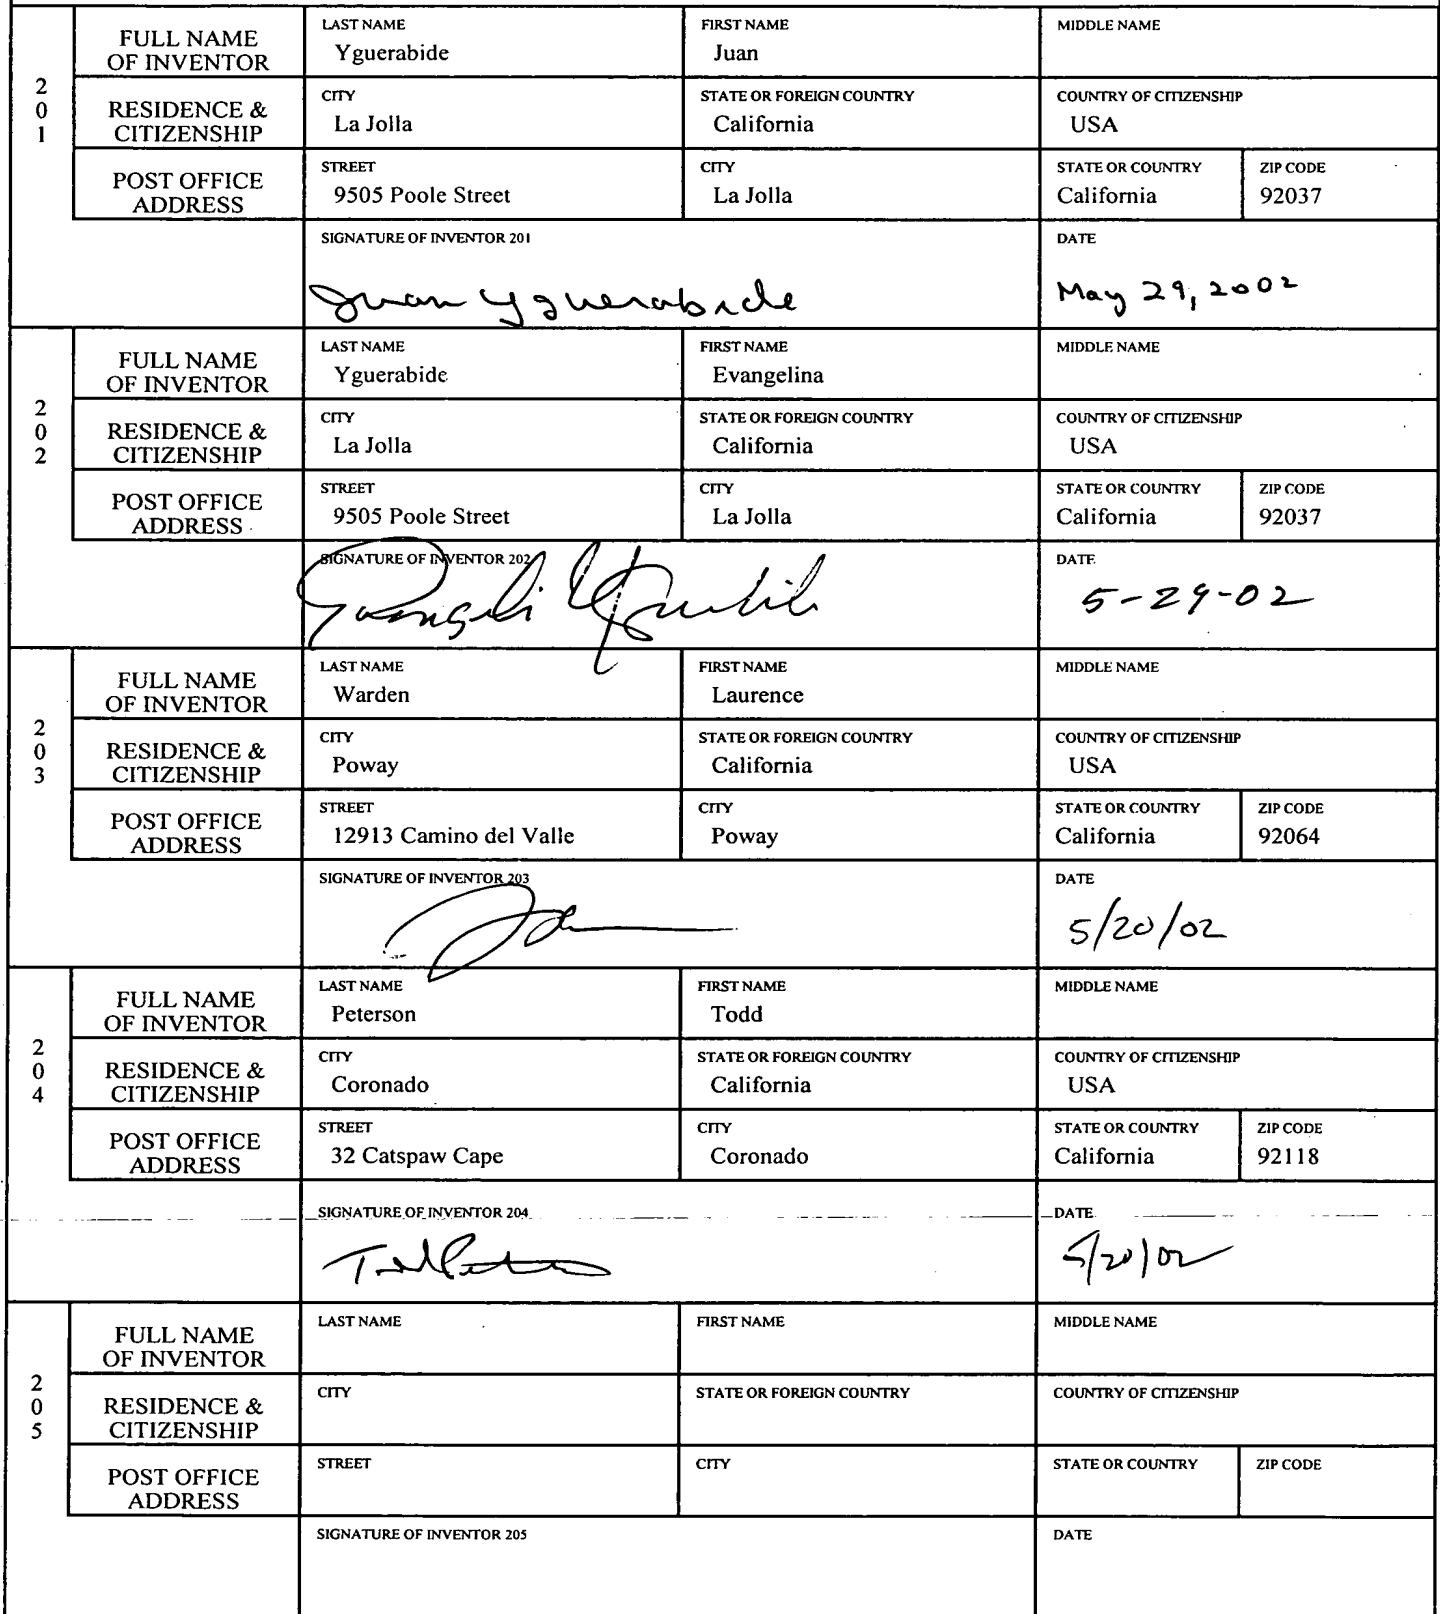 201
FULL NAME OF INVENTOR
LAST NAME
Yguerabide
FIRST NAME
Juan
MIDDLE NAME
RESIDENCE & CITIZENSHIP
CITY
La Jolla
STATE OR FOREIGN COUNTRY
California
COUNTRY OF CITIZENSHIP
USA
POST OFFICE ADDRESS
STREET
9505 Poole Street
CITY
La Jolla
STATE OR COUNTRY
California
ZIP CODE
92037
SIGNATURE OF INVENTOR 201
Juan Yguerabide
DATE
May 29, 2002
202
FULL NAME OF INVENTOR
LAST NAME
Yguerabide
FIRST NAME
Evangelina
MIDDLE NAME
RESIDENCE & CITIZENSHIP
CITY
La Jolla
STATE OR FOREIGN COUNTRY
California
COUNTRY OF CITIZENSHIP
USA
POST OFFICE ADDRESS
STREET
9505 Poole Street
CITY
La Jolla
STATE OR COUNTRY
California
ZIP CODE
92037
SIGNATURE OF INVENTOR 202
DATE
5-29-02
203
FULL NAME OF INVENTOR
LAST NAME
Warden
FIRST NAME
Laurence
MIDDLE NAME
RESIDENCE & CITIZENSHIP
CITY
Poway
STATE OR FOREIGN COUNTRY
California
COUNTRY OF CITIZENSHIP
USA
POST OFFICE ADDRESS
STREET
12913 Camino del Valle
CITY
Poway
STATE OR COUNTRY
California
ZIP CODE
92064
SIGNATURE OF INVENTOR 203
DATE
5/20/02
204
FULL NAME OF INVENTOR
LAST NAME
Peterson
FIRST NAME
Todd
MIDDLE NAME
RESIDENCE & CITIZENSHIP
CITY
Coronado
STATE OR FOREIGN COUNTRY
California
COUNTRY OF CITIZENSHIP
USA
POST OFFICE ADDRESS
STREET
32 Catspaw Cape
CITY
Coronado
STATE OR COUNTRY
California
ZIP CODE
92118
SIGNATURE OF INVENTOR 204
DATE
5/20/02
205
FULL NAME OF INVENTOR
LAST NAME
FIRST NAME
MIDDLE NAME
RESIDENCE & CITIZENSHIP
CITY
STATE OR FOREIGN COUNTRY
COUNTRY OF CITIZENSHIP
POST OFFICE ADDRESS
STREET
CITY
STATE OR COUNTRY
ZIP CODE
SIGNATURE OF INVENTOR 205
DATE